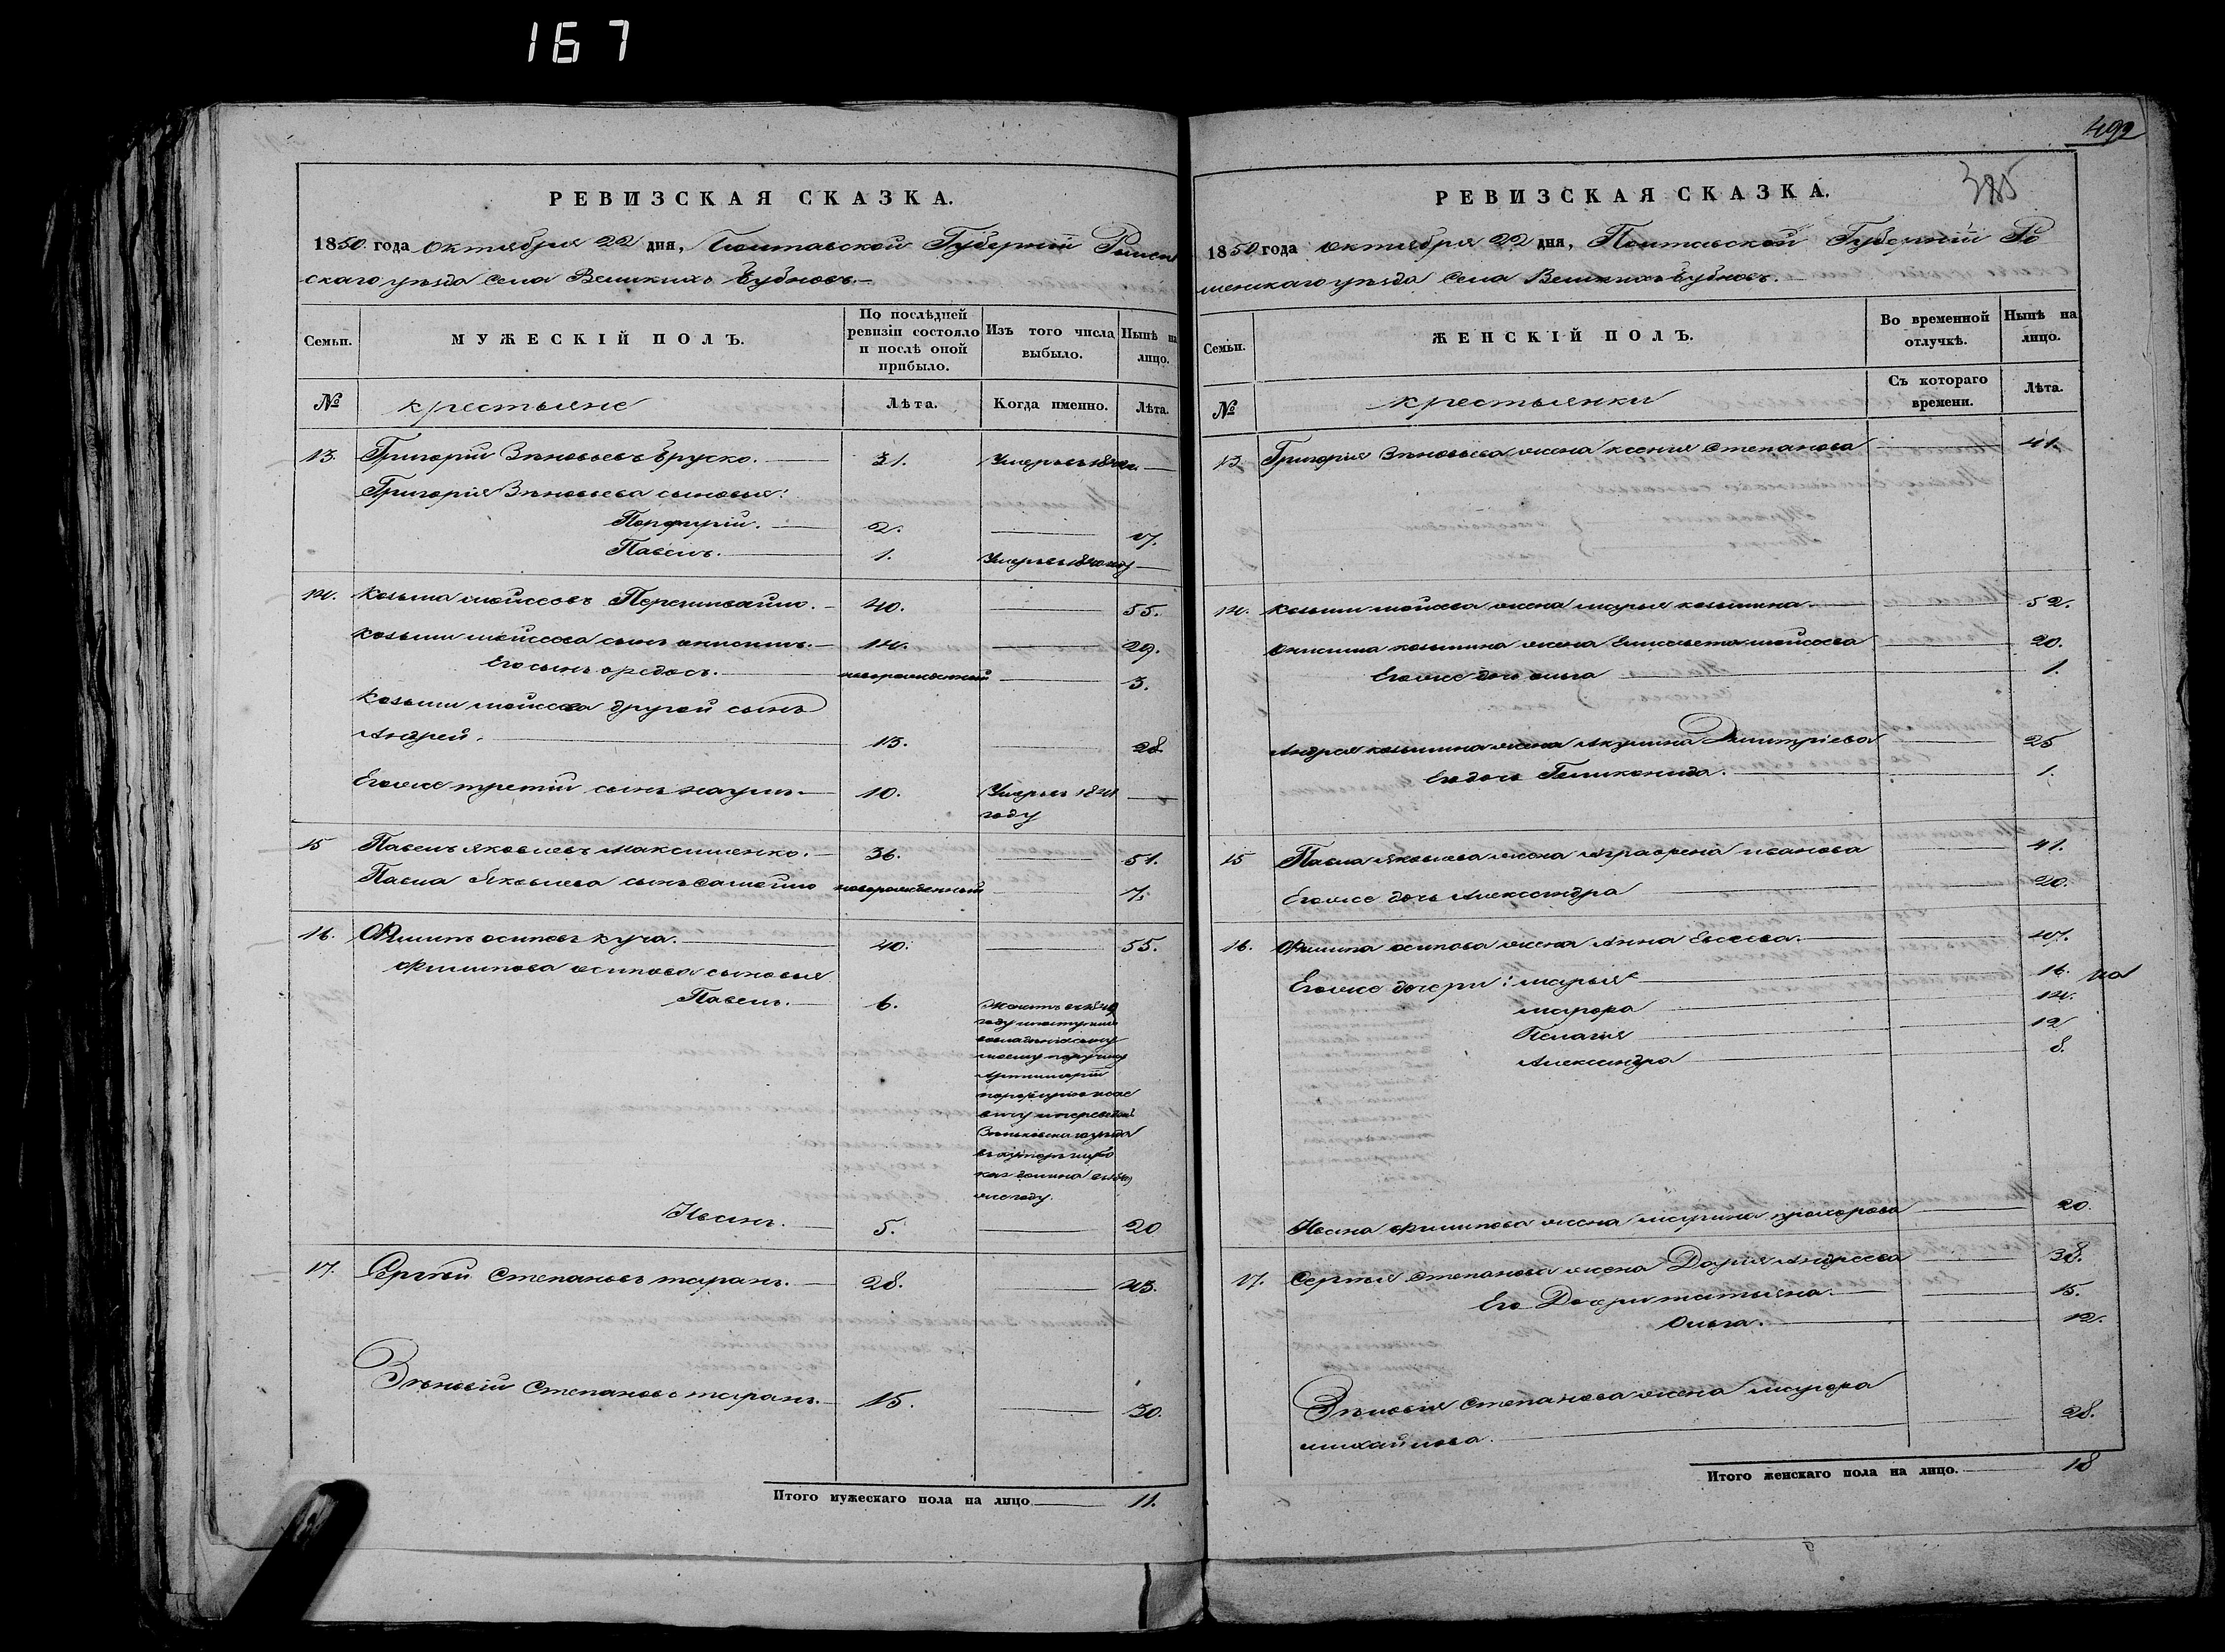 167
РЕВИЗСКАЯ СКАЗКА.
1850 года Октября 22 дня, Полтавской Губерніи Ромен
скаго уѣзда Села Великихъ Бубновъ.
Семьи.
МУЖЕСКІЙ ПОЛЪ.
По послѣдней ревизіи состояло и послѣ оной прибыло.
Изъ того числа выбыло.
Нынѣ на лицо.
№ крестьяне Лѣта. Когда именно. Лѣта.
13. Григорій Зѣновьевъ 31. Умеръ
Григорія Зѣновьева сыновья:
Порфирій. 2. 17.
Павелъ. 1. Умеръ 1840 году
14. Козьма Мойсеевъ 40. 55.
Козьмы Мойсеева сынъ Анисимъ. 14. 29.
Его сынъ Федосъ. новорожденный 3.
Козьмы Мойсеева другой сынъ
Андрей. 13. 28.
Егоже третій сынъ Наумъ. 10. Умеръ 1841
году
15 Павелъ Яковлевъ Максименко. 36. 51.
Павла Яковлева сынъ Самойло новорожденный 7.
16. Филипъ Осиповъ Куча. 40. 55.
Филипова Осипова сыновья
Павелъ. 6.
году
моему
Артилеріи
Зѣньковскаго уѣзда
долина
же году.
Иванъ. 5. 20
17. Сергѣй Степановъ Таранъ. 28. 43.
Зѣновій Степановъ Таранъ. 15. 30.
Итого мужескаго пола на лицо 11.
492
385
РЕВИЗСКАЯ СКАЗКА.
1850 года Октября 22 дня, Полтавской Губерніи Ро
менскаго уѣзда Села Великихъ Бубновъ.
Семьи.
ЖЕНСКІЙ ПОЛЪ.
Во временной отлучкѣ.
Нынѣ на лицо.
№ крестьянки Съ котораго времени. Лѣта.
13 Григорія Зѣновьева жена Ксенія Степанова 41.
14. Козьмы Мойсеева жена Марья Козьмина. 52.
Анисима Козьмина жена Елисавета Мойсеева 20.
Егоже дочь Ольга 1.
Андрея Козьмина жена Акулина Дмитріева 25
Его дочь Гликенида. 1.
15 Павла Яковлева жена Аграфена Иванова 41.
Егоже дочь Александра 20.
16. Филипа Осипова жена Анна Евсеева. 47.
Егоже дочери: Марья 16.
Мавра 14.
Пелагія 12
Александра 8.
Ивана Филипова жена Марина Прохорова 20.
17. Сергѣя Степанова жена Дарія Андреева 38.
Его Дочери Татьяна. 15.
Ольга. 12.
Зѣновія Степанова жена Мавра
Михайлова. 28.
Итого женскаго пола на лицо. 18